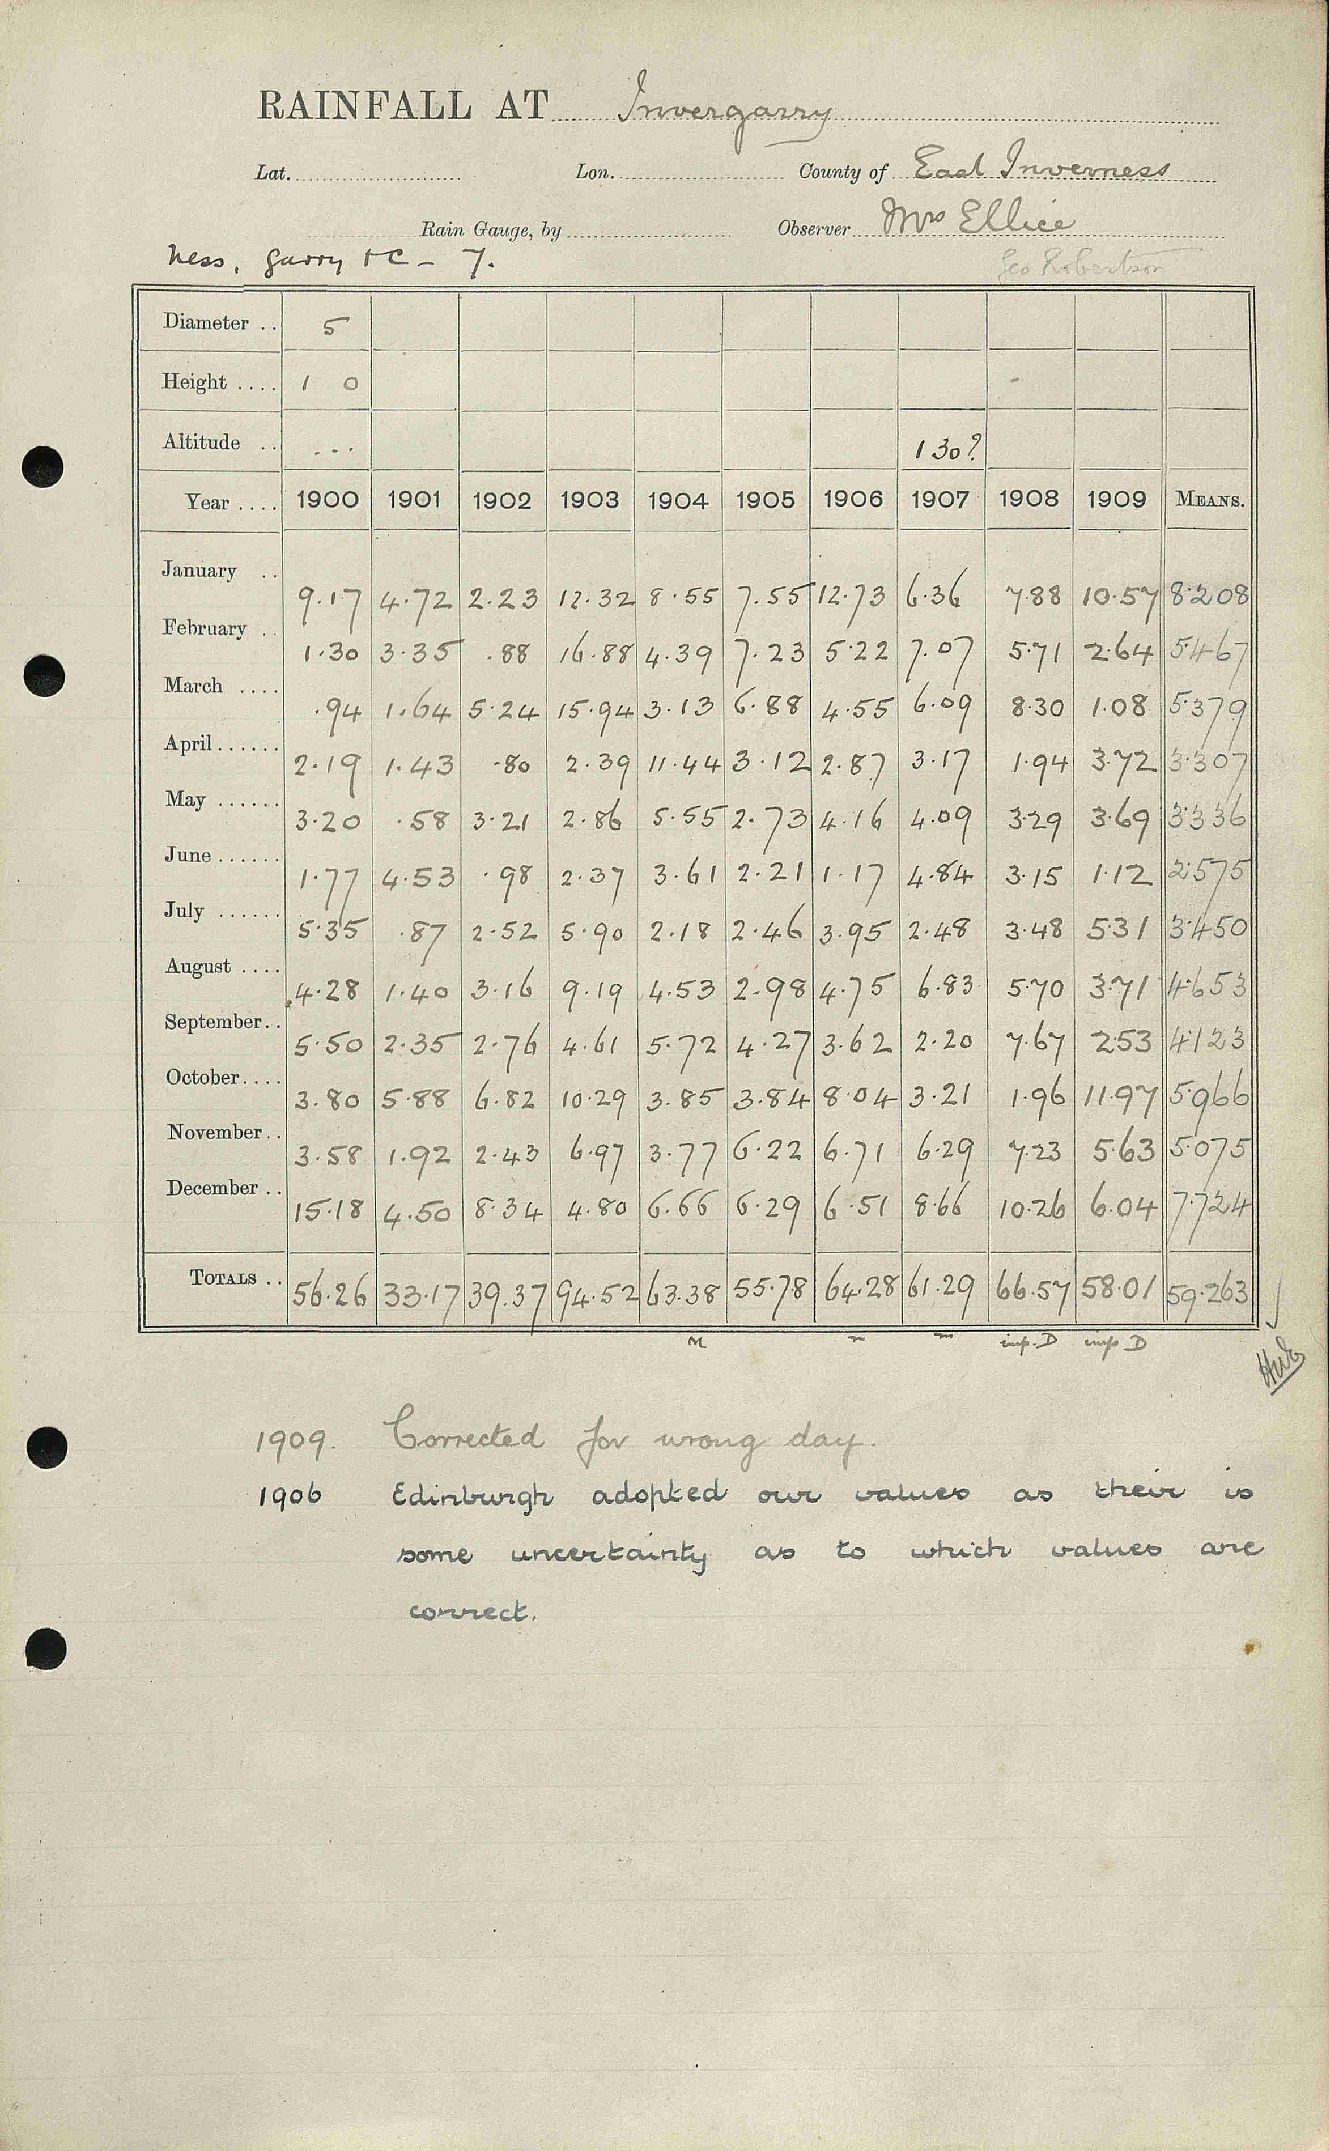 RAINFALL AT Invergarry
Lat. Lon. County of East Inverness
Rain Gauge, by Observer Mrs Ellice
Ness, Garry &c - 7. Geo Robertson
Diameter .. 5
Height .... 1 0 -
Altitude .. ... 130?
Year .... 1900 1901 1902 1903 1904 1905 1906 1907 1908 1909 MEANS.
January .. 9.17 4.72 2.23 12.32 8.55 7.55 12.73 6.36 7.88 10.57 8.208
February .. 1.30 3.35 .88 16.88 4.39 7.23 5.22 7.07 5.71 2.64 5.467
March .... .94 1.64 5.24 15.94 3.13 6.88 4.55 6.09 8.30 1.08 5.379
April ...... 2.19 1.43 .80 2.39 11.44 3.12 2.87 3.17 1.94 3.72 3.307
May ...... 3.20 .58 3.21 2.86 5.55 2.73 4.16 4.09 3.29 3.69 3.336
June ...... 1.77 4.53 .98 2.37 3.61 2.21 1.17 4.84 3.15 1.12 2.575
July ...... 5.35 .87 2.52 5.90 2.18 2.46 3.95 2.48 3.48 5.31 3.450
August .... 4.28 1.40 3.16 9.19 4.53 2.98 4.75 6.83 5.70 3.71 4.653
September.. 5.50 2.35 2.76 4.61 5.72 4.27 3.62 2.20 7.67 2.53 4.123
October.... 3.80 5.88 6.82 10.29 3.85 3.84 8.04 3.21 1.96 11.97 5.966
November.. 3.58 1.92 2.43 6.97 3.77 6.22 6.71 6.29 7.23 5.63 5.075
December .. 15.18 4.50 8.34 4.80 6.66 6.29 6.51 8.66 10.26 6.04 7.724
TOTALS .. 56.26 33.17 39.37 94.52 63.38 55.78 64.28 61.29 66.57 58.01 59.263
M m m imp. D imp D
1909. Corrected for wrong day.
1906 Edinburgh adopted our values as their is
some uncertainty as to which values are
correct.